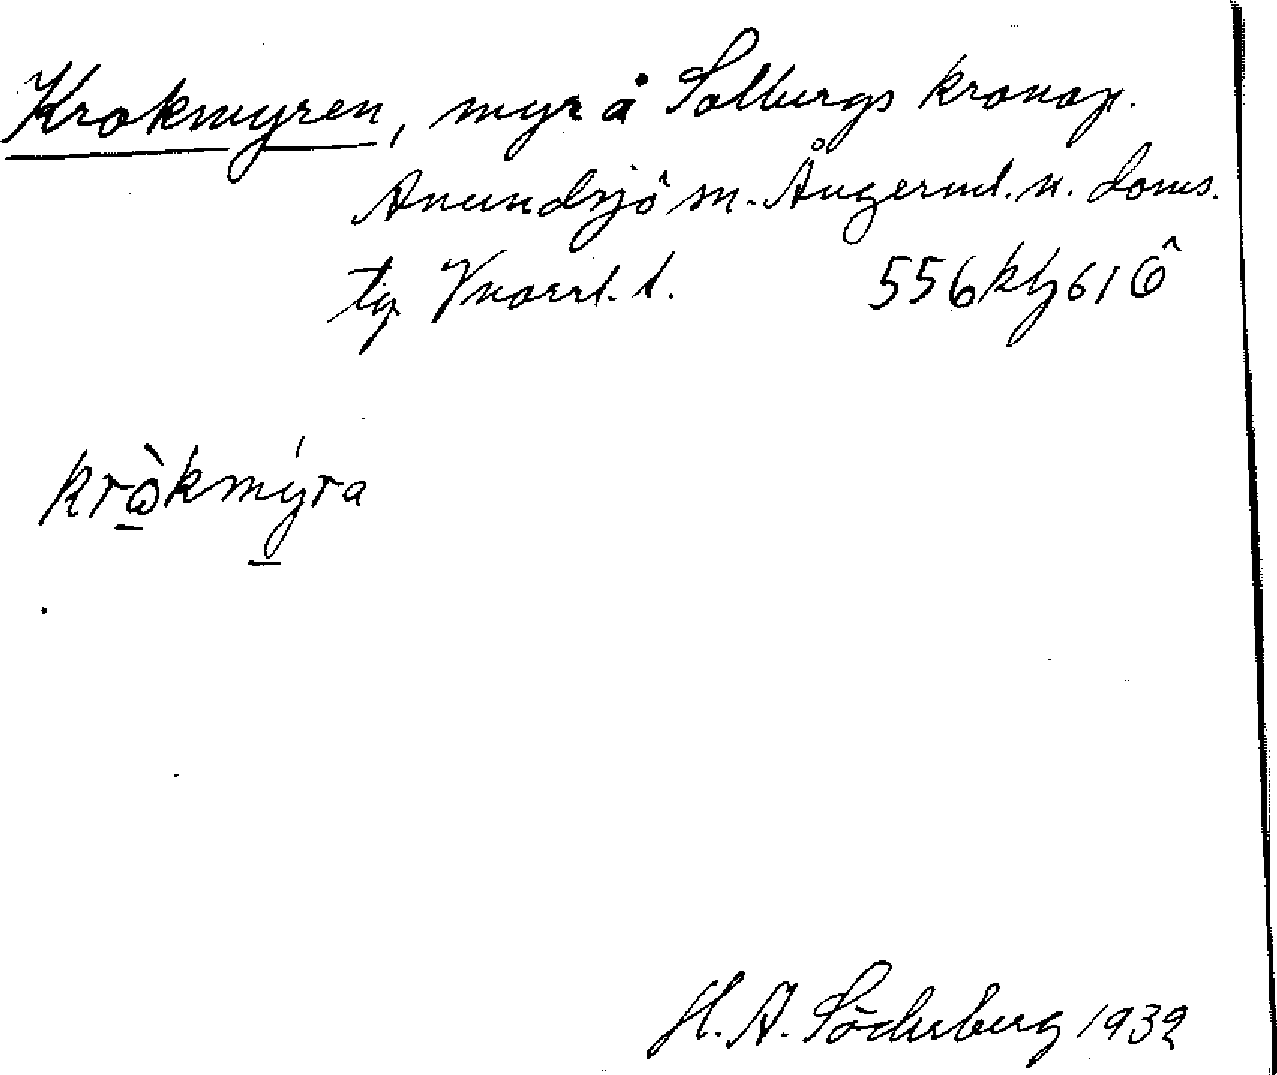 Krokmyren, myr å Solbergs kronop.
Anundsjö sn. Ångerml. n. doms.
tg Vnorrl. l.
kròkmýra
H. A. Söderberg 1932